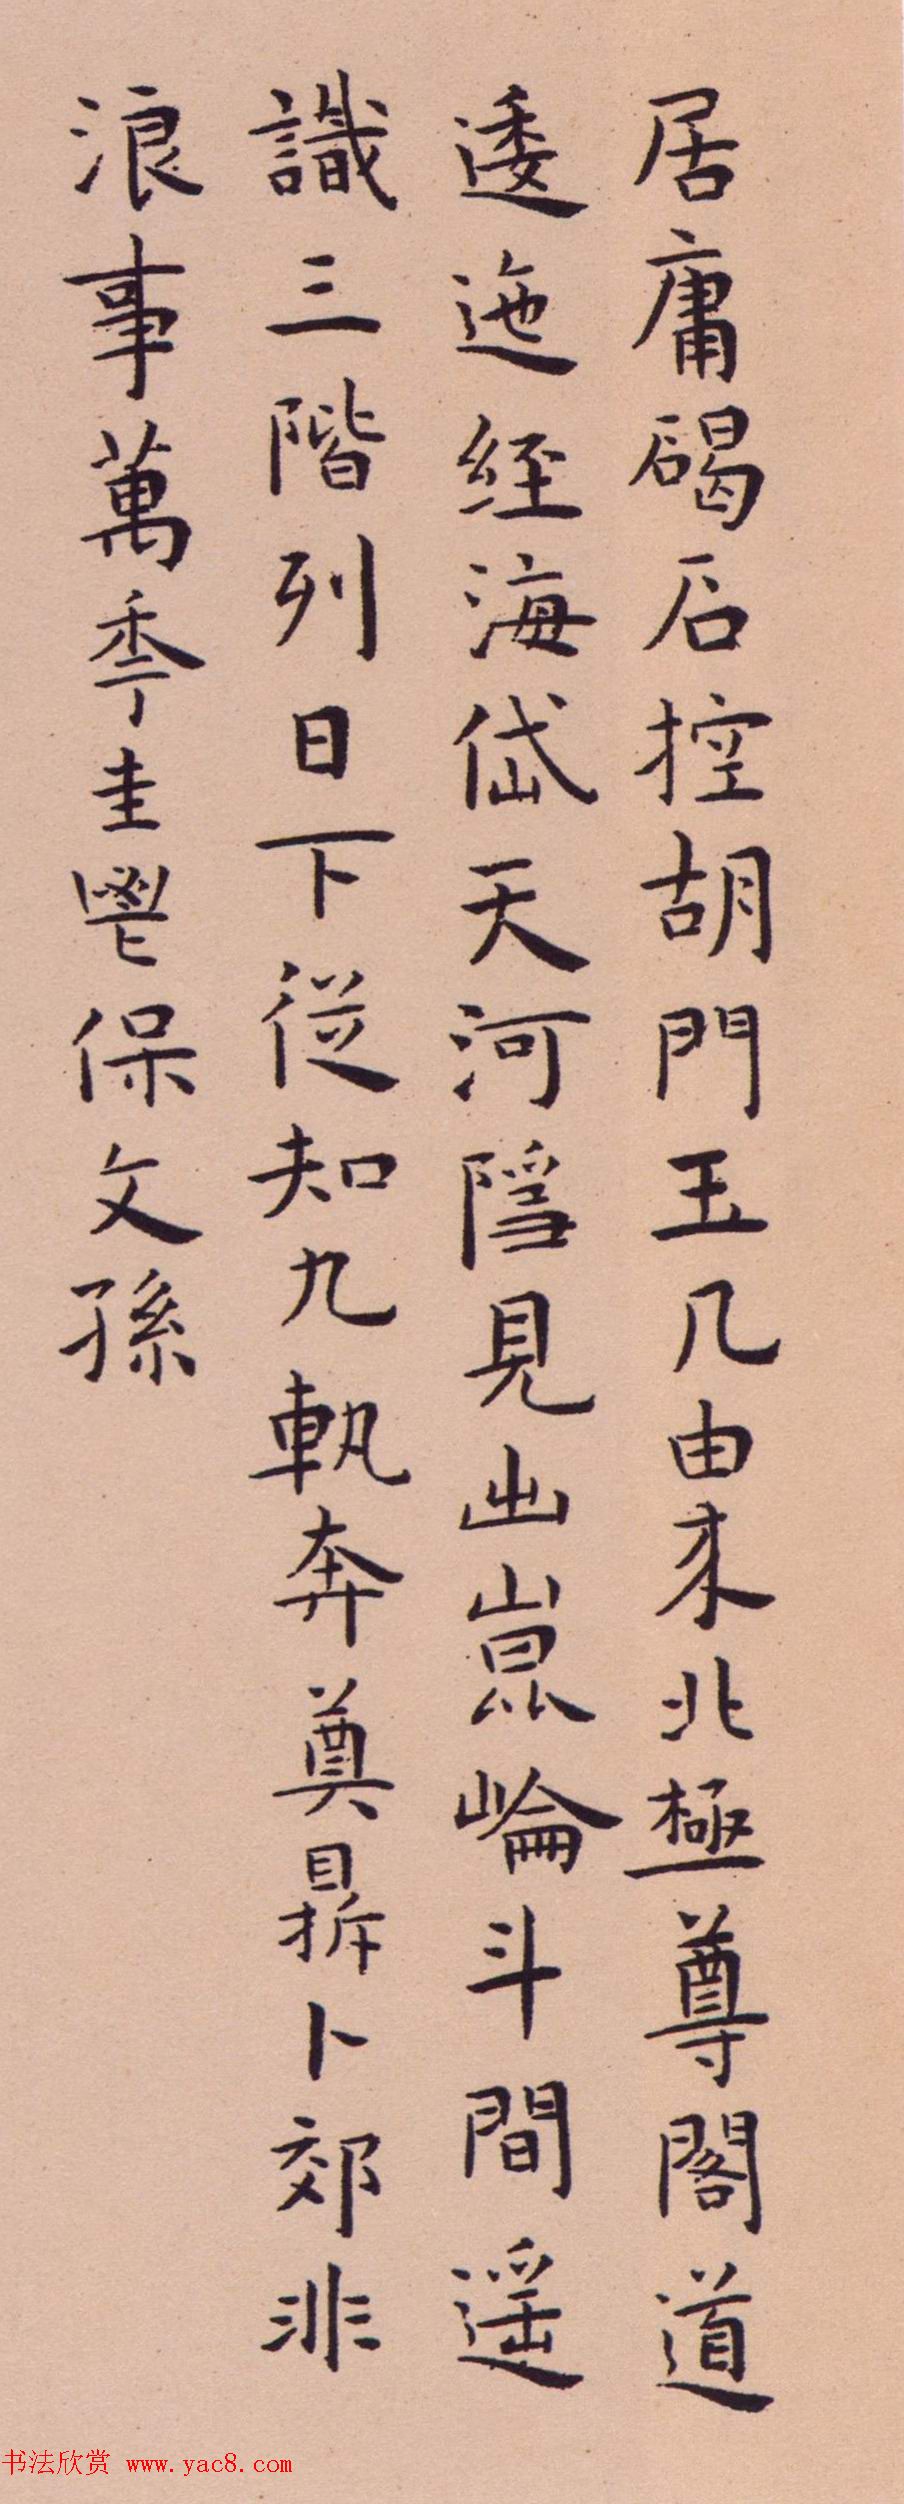 居庸碣石控胡門玉几由來北極尊閣道
逶迤經海岱天河隱見出崑崙斗間遥
識三階列日下從知九軌奔奠鼎卜郊非
浪事萬季圭鬯保文孫
书法欣赏 www.yac8.com